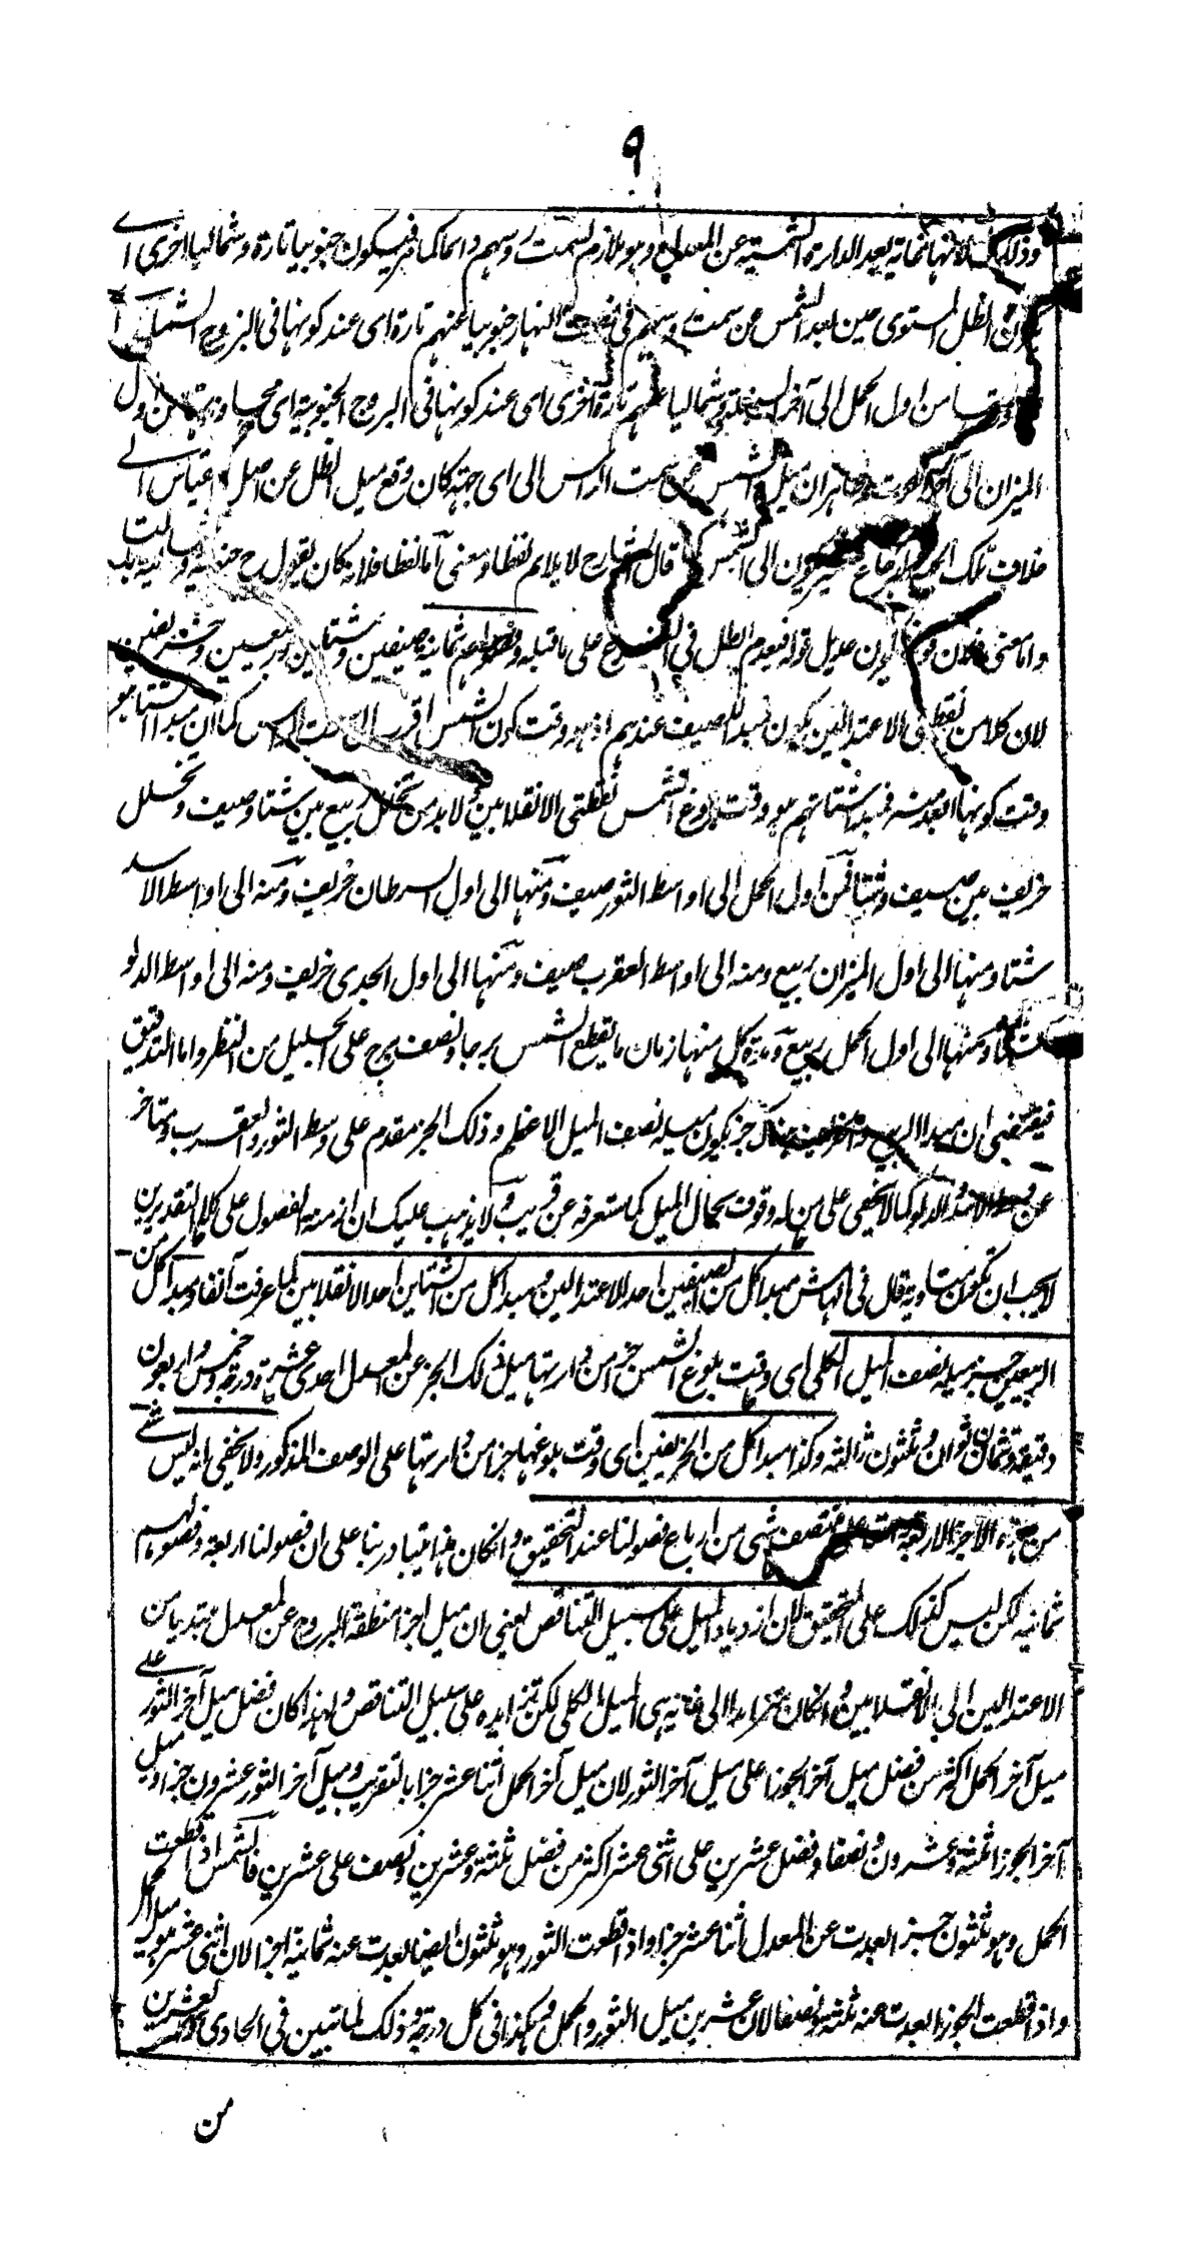 ٩
وذلك لانها نهاية بعد الدائرة الشمسية عن المعدل وهو ملازم لسمت رؤسهم دائما كما مر فيكون جنوبيا تارة وشماليا اخرى اے
يكون الظل المستوى حين بعد الشمس عن سمت رؤسهم فى نصف النهار جنوبيا عنهم تارة اى عند كونها فى البروج الشمالية
من اول الحمل الى آخر السنبلة وشماليا عنهم تارة اخرى اى عند كونها فى البروج الجنوبية اى من اول
الميزان الى آخر الحوت وظاهر ان ميل الشمس عن سمت الراس الى اى جهة كان وقع ميل الظل عن اصل المقياس الے
خلاف تلك الجهة الى الشمس قال الشارح لا يلايم لفظا ومعنى اما لفظا فلانه كان يقول ح
واما معنى فلان يكون عديل قوله فيعدم الظل فى على ما قبله وفصولهم ثمانية صيفين وشتائين وربيعين وخريفين
لان كلا من نقطتى الاعتدالين يكون مبدا للصيف عندهم اذ هو وقت كون الشمس اقرب الى سمت الراس كما ان مبدا الشتا هو
وقت كونها ابعد منه فمبدا شتائهم هو وقت بلوغ الشمس نقطتى الانقلابين ولا بد من تخلل ربيع بين شتا وصيف وتخلل
خريف بين صيف وشتا فمن اول الحمل الى اواسط الثور صيف ومنها الى اول السرطان خريف ومنه الى اواسط الاسد
شتا ومنها الى اول الميزان ربيع ومنه الى اواسط العقرب صيف ومنها الى اول الجدى خريف ومنه الى اواسط الدلو
شتا ومنها الى اول الحمل ربيع ومدة كل منها زمان ما يقطع الشمس برجا ونصف برج على الجليل من النظر واما التدقيق
فيقتضى ان مبدا الربيع والخريف هناك جزء يكون ميله نصف الميل الاعظم وذلك الجزء مقدم على وسط الثور والعقرب ومتاخر
عن وسط الاسد والدلو كما لا يخفى على من له وقوف بحال الميل كما ستعرفه عن قريب ولا يذهب عليك ان ازمنة الفصول على كلا التقديرين
لا يجب ان تكون متساوية قال فى الهامش مبدا كل من الصيفين احد الاعتدالين ومبدا كل من الشتاين احد الانقلابين كما عرفت آنفا ومبدا كل من
الربيعين جزء ميله نصف الميل الكلى اى وقت بلوغ الشمس جزءا من دائرتها ميل ذلك الجزء عن المعدل احدى عشرة درجة وخمس واربعون
دقيقة وثمان ثوان وثلثون ثالثة وكذا مبدا كل من الخريفين اى وقت بلوغها جزءا من دائرتها على الوصف المذكور ولا يخفى انه ليس شے
من هذه الاجزاء الاربعة على منتصف شئ من ارباع فصولنا عند التحقيق وان كان هذا يتبادر بناء على ان فصولنا اربعة وفصولهم
ثمانية لكن ليس كذلك على التحقيق لان ازدياد الميل على سبيل التناقص يعنى ان ميل اجزاء منطقة البروج عن المعدل مبتديا من
الاعتدالين الى الانقلابين وان كان متزايدا الى غاية هى الميل الكلى لكن تزايده على سبيل التناقص ولهذا كان فضل ميل آخر الثور على
ميل آخر الحمل اكثر من فضل ميل آخر الجوزا على ميل آخر الثور لان ميل آخر الحمل اثنا عشر جزءا بالتقريب وميل آخر الثور عشرون جزءا وميل
آخر الجوزا ثلثة وعشرون ونصفا وفضل عشرين على اثنى عشر اكثر من فضل ثلثة وعشرين ونصف على عشرين فالشمس اذا قطعت
الحمل وهو ثلثون جزءا بعدت عن المعدل اثنا عشر جزءا واذا قطعت الثور وهو ثلثون ايضا بعدت عنه ثمانية اجزاء لان اثنى عشر هو ميل الحمل
واذا قطعت الجوزا بعدت عنه ثلثة ونصفا لان عشرين ميل الثور والحمل وهكذا فى كل درجة وذلك لما تبين فى الحادى والعشرين
من